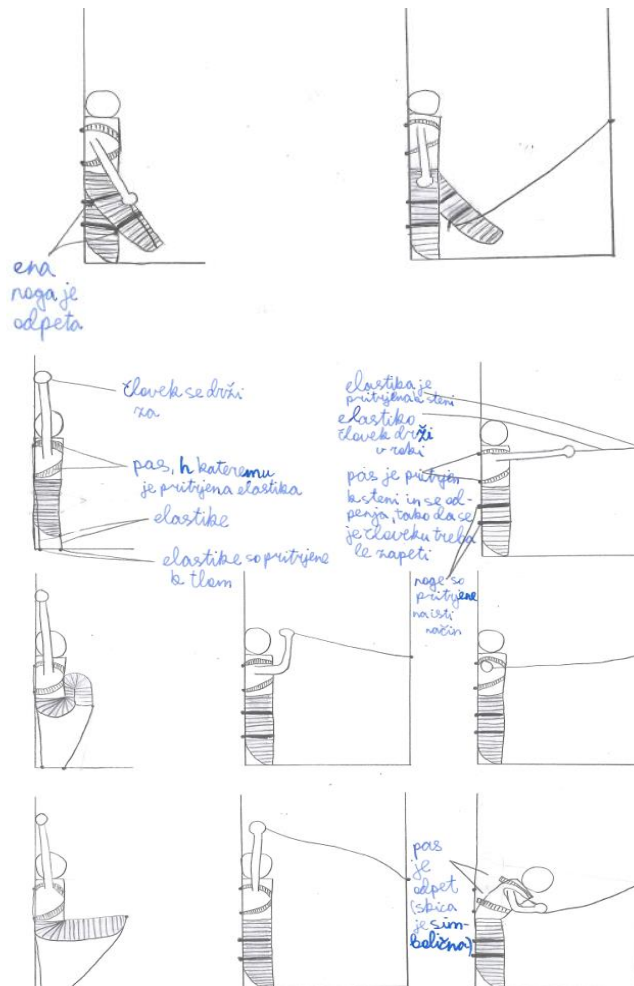 ena
noga je
odpeta
človek se drži
za
pas, h kateremu
je pritrjena elastika
elastike
elastike so pritrjene
k tlom
elastika je
pritrjena k steni
elastiko
človek drži
v roki
pas je pritrjen
k steni in se od-
penja, tako da se
je človeku treba
le zapeti
noge so
pritrjene
na isti
način
pas
je
odpet
(skica
je sim-
bolična)